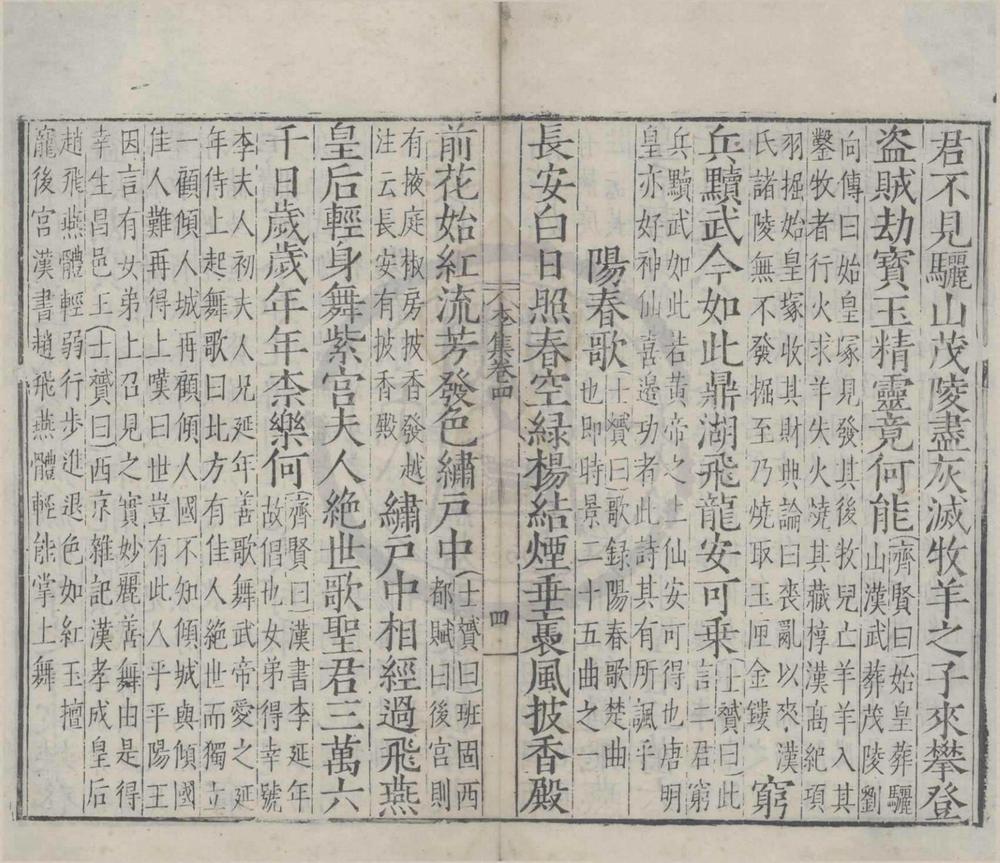 君不見驪山茂陵盡灰滅牧羊之子來攀登
盜賊劫寶玉精靈竟何能
齊賢曰始皇葬驪
山漢武葬茂陵劉
向傳曰始皇冢見發其後牧兒亡羊羊入其
鑿牧者行火求羊失火燒其藏椁漢高紀項
羽掘始皇冢收其財典論曰喪亂以來漢
氏諸陵無不發掘至乃燒取玉匣金鏤
窮
兵黷武今如此鼎湖飛龍安可乗
士贇曰此
言二君窮
兵黷武如此若黃帝之上仙安可得也唐明
皇亦好神仙喜邉功者此詩其有所諷乎
陽春歌
士贇曰歌録陽春歌楚曲
也即時景二十五曲之一
長安白日照春空緑楊結煙垂裊風披香殿
前花始紅流芳發色繡戸中
士贇曰班固西
都賦曰後宮則
有掖庭椒房披香發越
注云長安有披香殿
繡戸中相經過飛燕
皇后輕身舞紫宮夫人絶世歌聖君三萬六
千日歲歲年年柰樂何
齊賢曰漢書李延年
故倡也女弟得幸號
李夫人初夫人兄延年善歌舞武帝愛之延
年侍上起舞歌曰北方有佳人絶世而獨立
一顧傾人城再顧傾人國不知傾城與傾國
佳人難再得上嘆曰世豈有此人乎平陽王
因言有女弟上召見之實妙麗善舞由是得
幸生昌邑王士贇曰西京雜記漢孝成皇后
趙飛燕體輕弱行步進退色如紅玉擅
寵後宮漢書趙飛燕體輕能掌上舞
集卷四
四